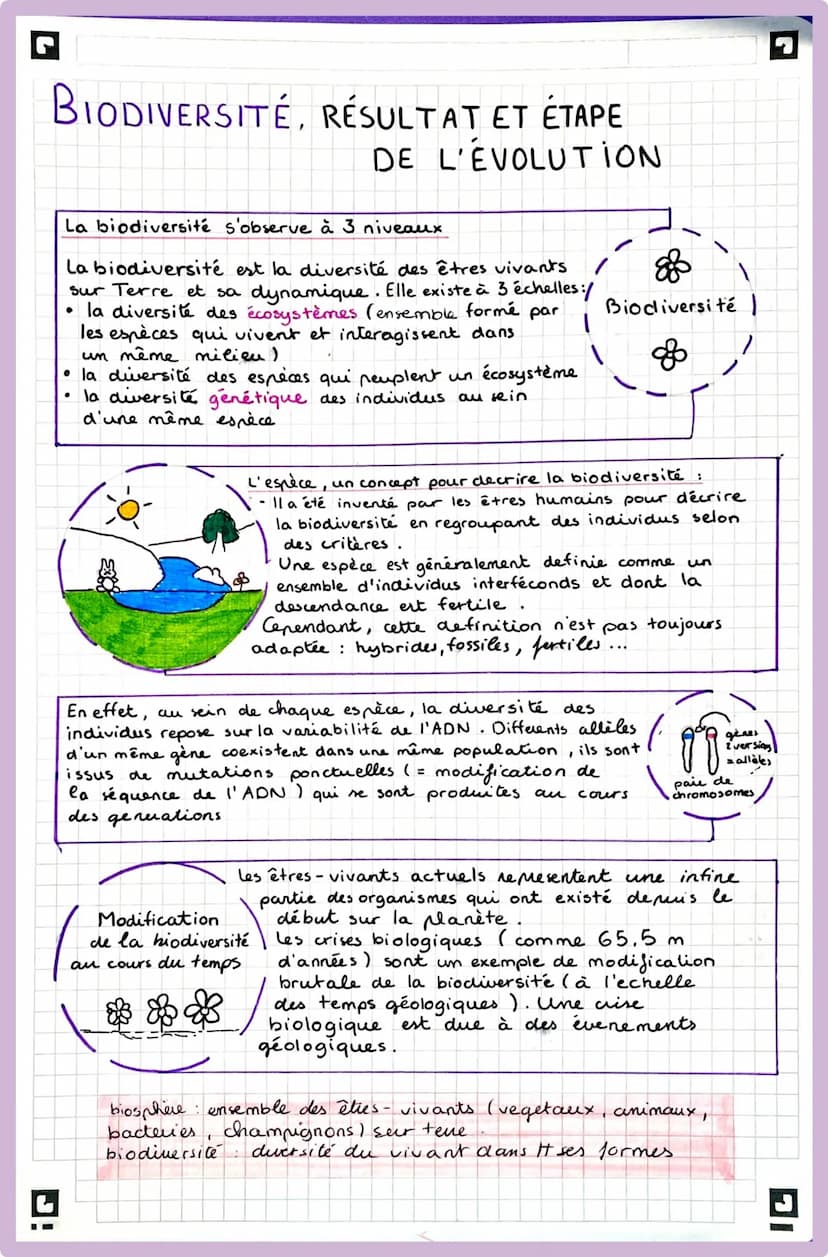 BIODIVERSITÉ, RÉSULTAT ET ÉTAPE
DE L'ÉVOLUTION
La biodiversité s'observe à 3 niveaux
La biodiversité est la diversité des êtres vivants
sur Terre et sa dynamique. Elle existe à 3 échelles :
• la diversité des écosystèmes (ensemble formé par
les espèces qui vivent et interagissent dans
un même milieu)
• la diversité des espèces qui peuplent un écosystème
• la diversité génétique des individus au sein
d'une même espèce
Biodiversité
L'espèce, un concept pour decrire la biodiversité :
- Il a été inventé par les êtres humains pour décrire
la biodiversité en regroupant des individus selon
des critères.
Une espèce est généralement definie comme un
ensemble d'individus interféconds et dont la
descendance est fertile.
Cependant, cette definition n'est pas toujours
adaptée : hybrides, fossiles, fertiles...
En effet, au sein de chaque espèce, la diversité des
individus repose sur la variabilité de l'ADN. Differents allèles
d'un même gène coexistent dans une même population, ils sont
issus de mutations ponctuelles (= modification de
la séquence de l'ADN) qui se sont produites au cours
des generations
gènes
2 versions
= allèles
paire de
chromosomes
Les êtres-vivants actuels representent une infine
partie des organismes qui ont existé depuis le
début sur la planète.
Les crises biologiques (comme 65,5 m
d'années) sont un exemple de modification
brutale de la biodiversité (à l'echelle
des temps géologiques). Une crise
biologique est due à des évenements
géologiques.
Modification
de la biodiversité
au cours du temps
biosphère : ensemble des êtres-vivants (vegetaux, animaux,
bacteries, champignons) sur terre.
biodiversité : diversité du vivant dans tt ses formes